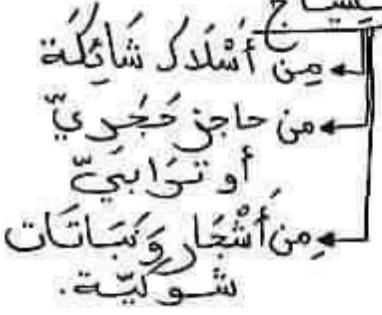 سياج
من أَسْلَاك شَائِكَة
من حاجز حَجَريّ
أو تُرَابيّ
من أَشْجَار وَنَبَاتَات
شوكيّة.